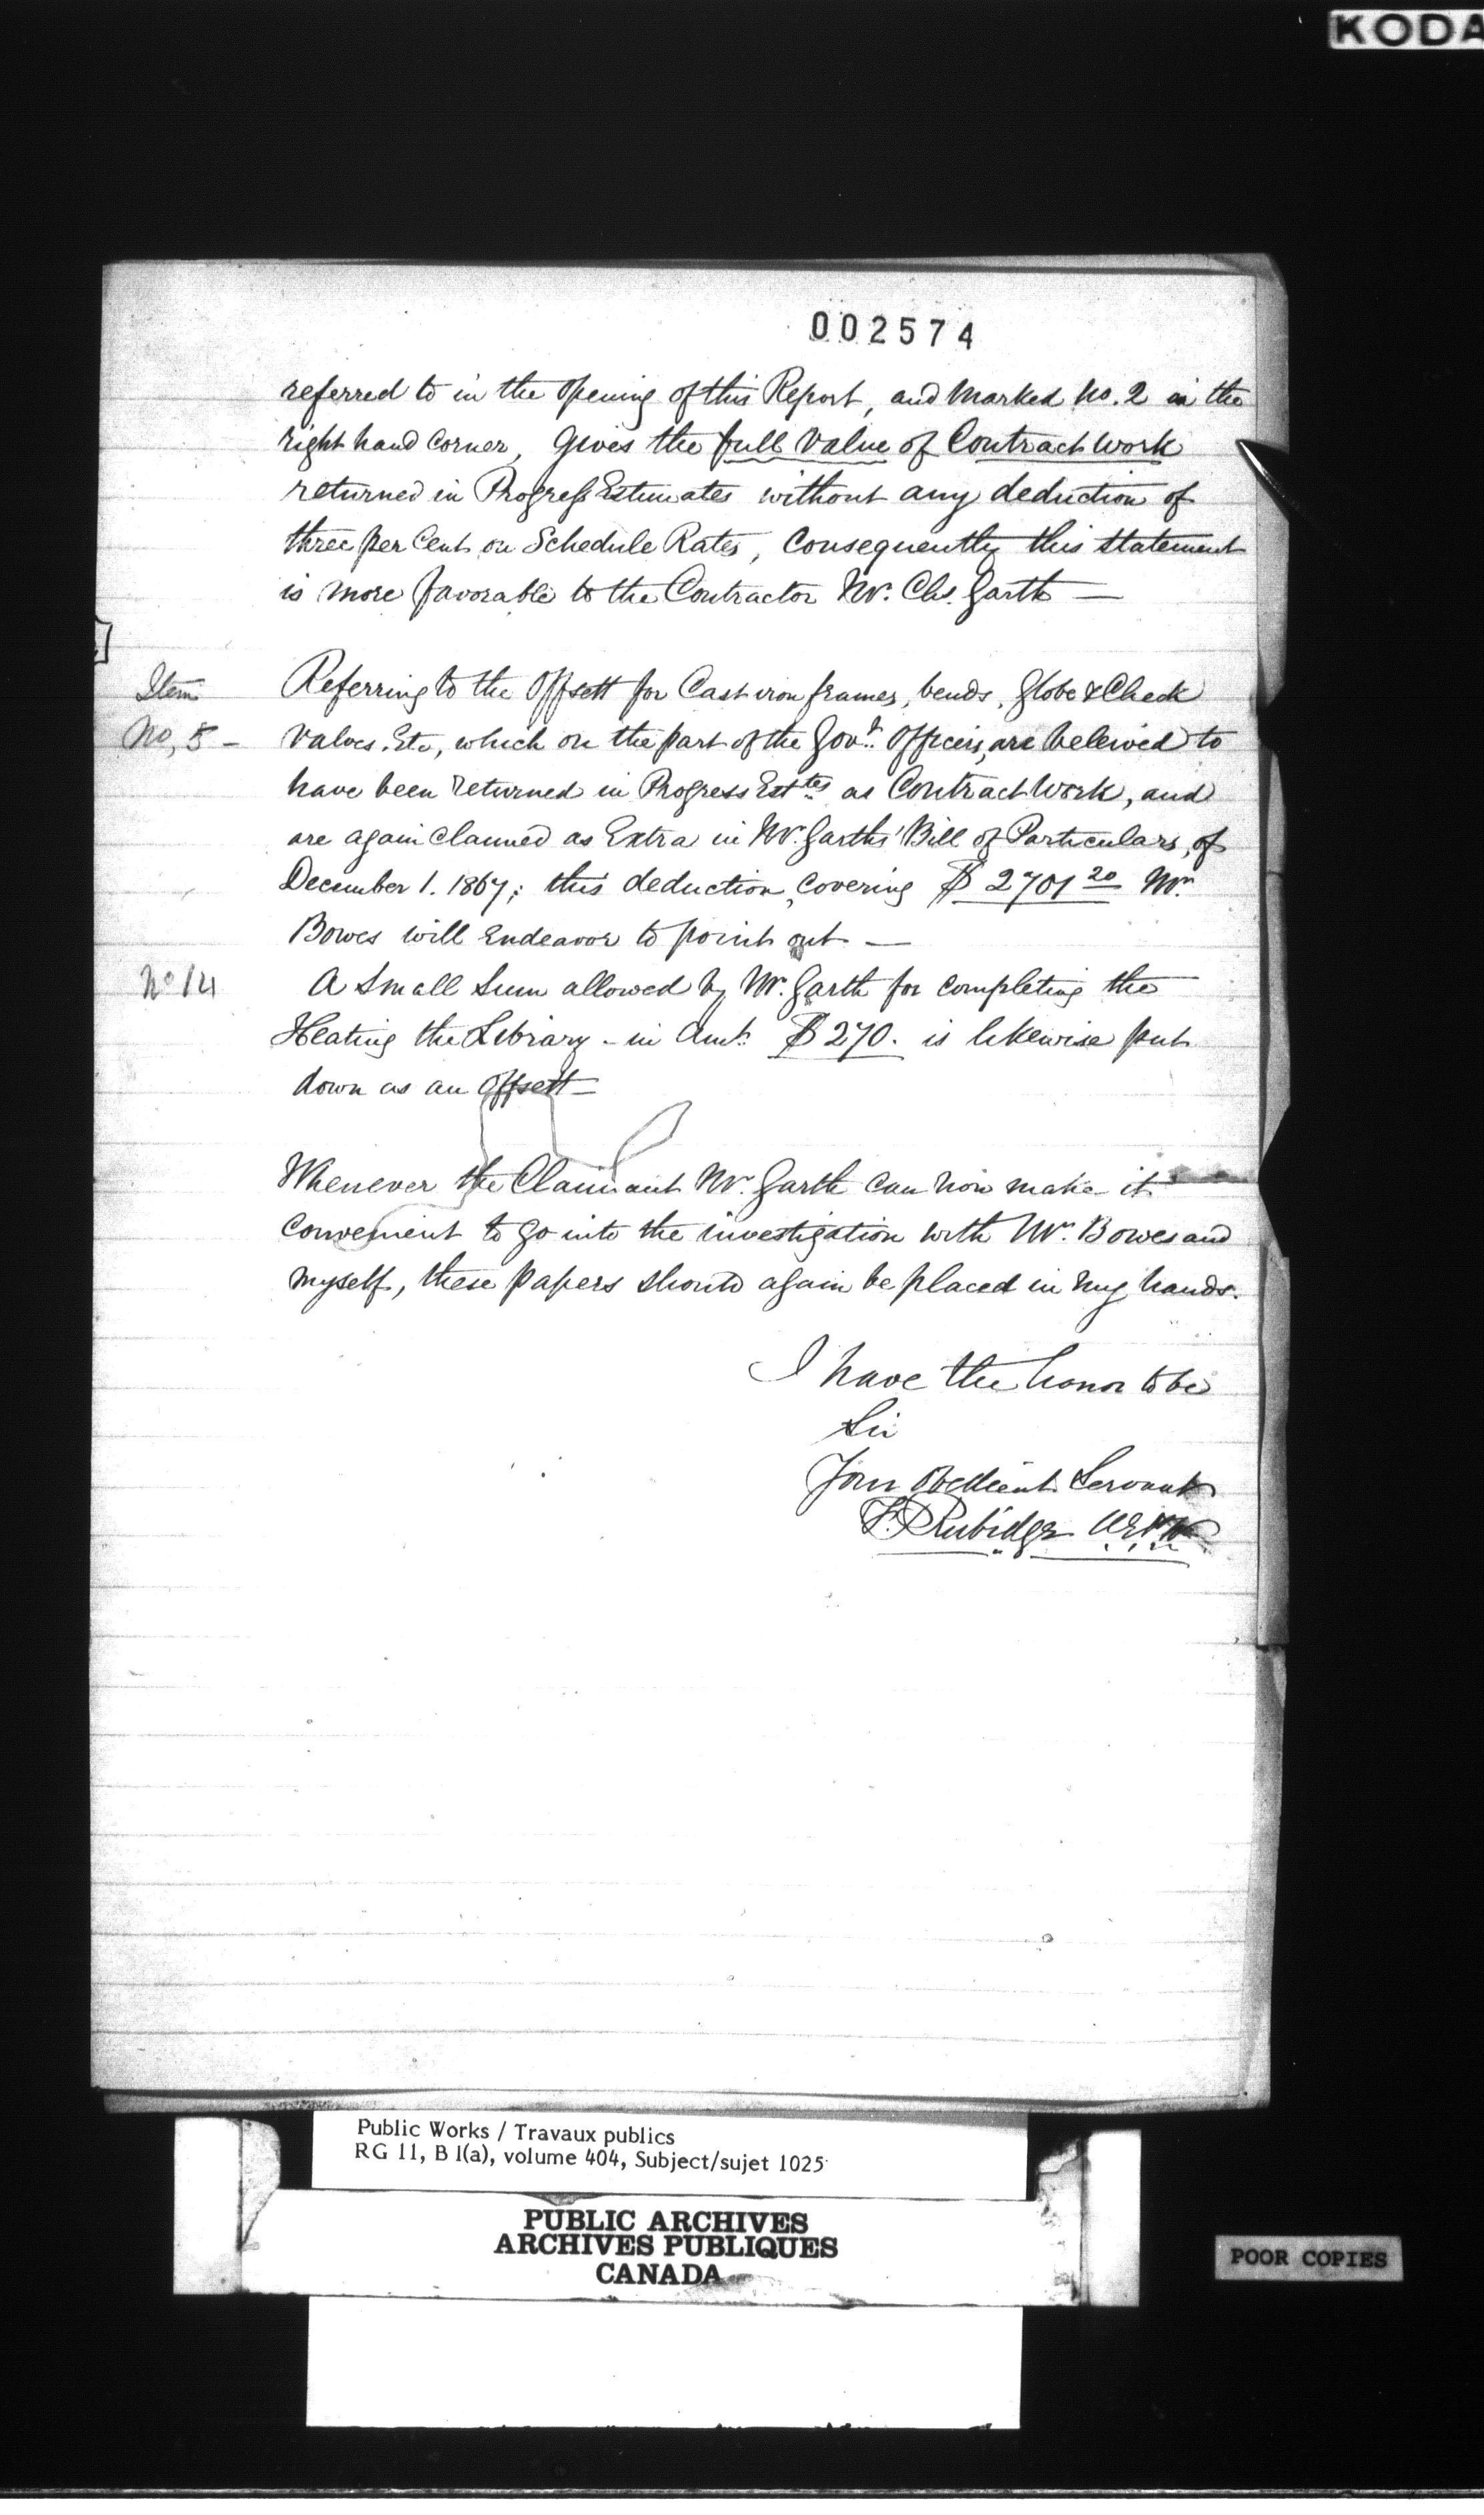 KODA
002574
referred to in the Opening of this Report, and Marked No. 2 in the
right hand Corner, Gives the full Value of Contract Work
returned in Progress Estimates without any deduction of
three per Cent on Schedule Rates, Consequently this Statement
is more favorable to the Contractor Mr. Chs. Garth —
Item Referring to the Offsett for Cast iron frames, bends, Globe & Check
No, 5 - Valves, Etc, which on the part of the Govt. Officers, are beleived to
have been returned in Progress Esttes as Contract Work, and
are again claimed as Extra in Mr. Garths' Bill of Particulars, of
December 1. 1867; this deduction, Covering $ 2701 20 Mr.
Bowes will Endeavor to point out —
No 14 A Small Sum allowed by Mr. Garth for Completing the
Heating the Library - in Amt. $ 270. is likewise put
down as an Offsett —
Whenever the Claimant Mr. Garth Can now make it
Convenient to go into the investigation with Mr. Bowes and
Myself, these papers should again be placed in my hands.
I have the honor to be
Sir
Your Obedient Servant
F. P. Rubidge
Public Works / Travaux publics
RG 11, B 1(a), volume 404, Subject/sujet 1025
PUBLIC ARCHIVES
ARCHIVES PUBLIQUES
CANADA
POOR COPIES